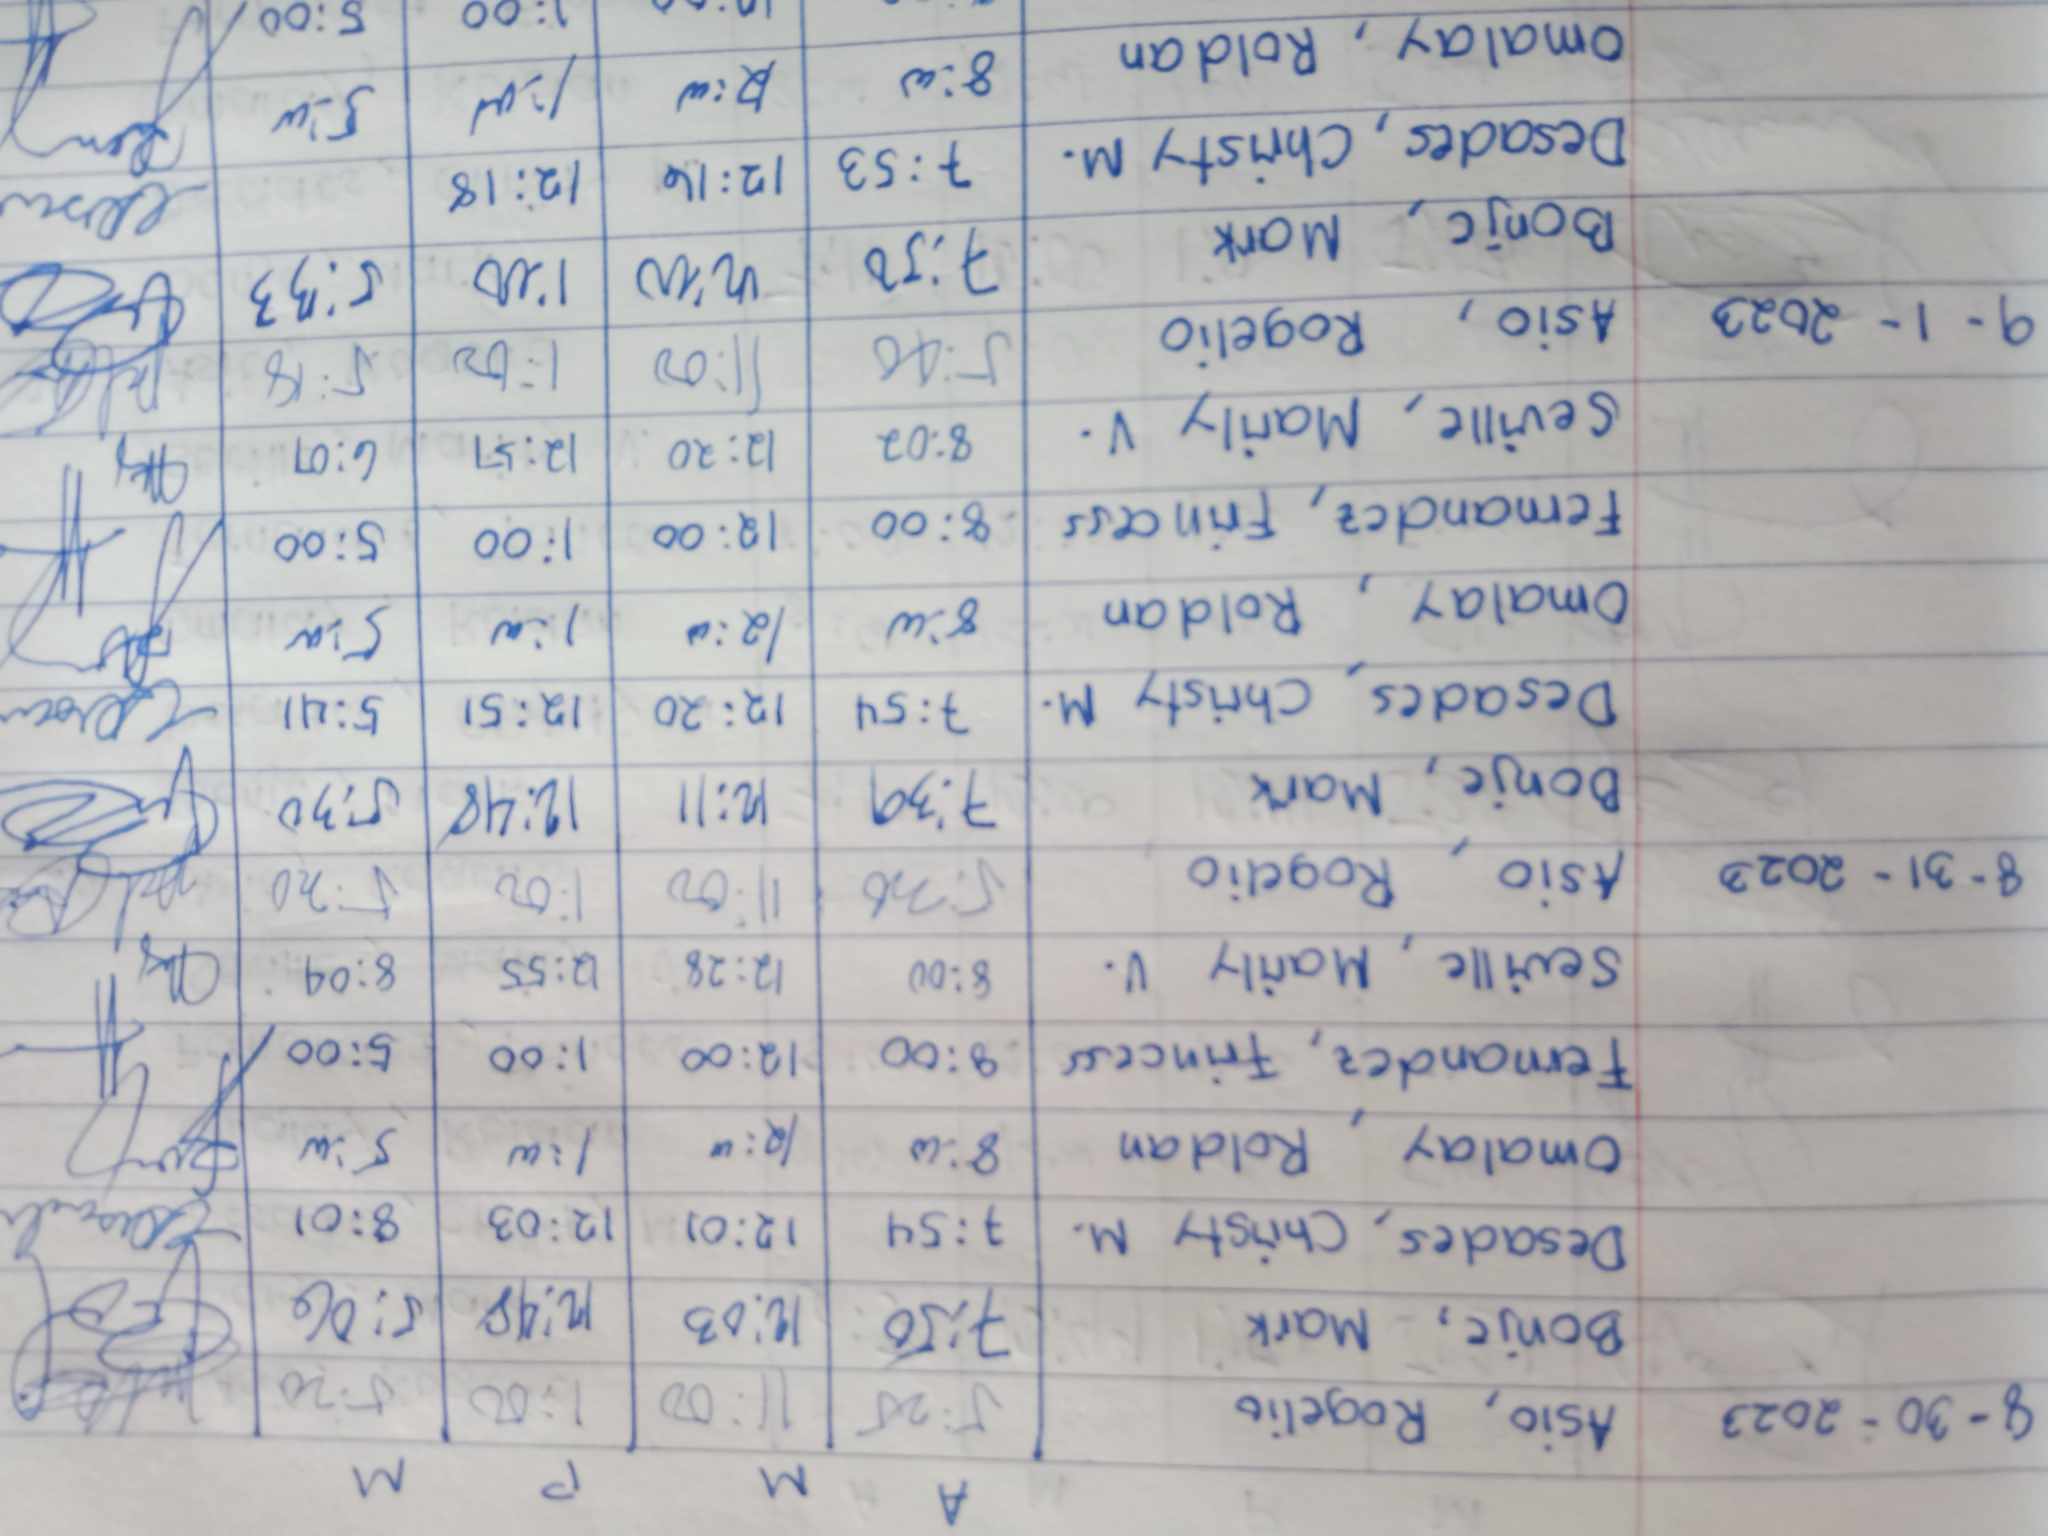 A M P M
8-30-2023 Asio, Rogelio 5:25 11:00 1:00 5:20
Bonje, Mark 7:50 12:03 12:48 5:06
Desades, Christy M. 7:54 12:01 12:03 8:01
Omalay, Roldan 8:00 12:00 1:00 5:00
Fernandez, Frincess 8:00 12:00 1:00 5:00
Seville, Marily V. 8:00 12:28 12:55 8:09
8-31-2023 Asio, Rogelio 11:00 1:00 5:20
Bonje, Mark 7:39 12:11 12:48 5:30
Desades, Christy M. 7:54 12:20 12:51 5:41
Omalay, Roldan 8:00 12:00 1:00 5:00
Fernandez, Frincess 8:00 12:00 1:00 5:00
Seville, Marily V. 8:02 12:20 12:57 6:07
9-1-2023 Asio, Rogelio 5:40 11:00 1:00 5:18
Bonje, Mark 7:50 12:00 1:00 5:33
Desades, Christy M. 7:53 12:16 12:18
Omalay, Roldan 8:00 12:00 1:00 5:00
1:00 5:00